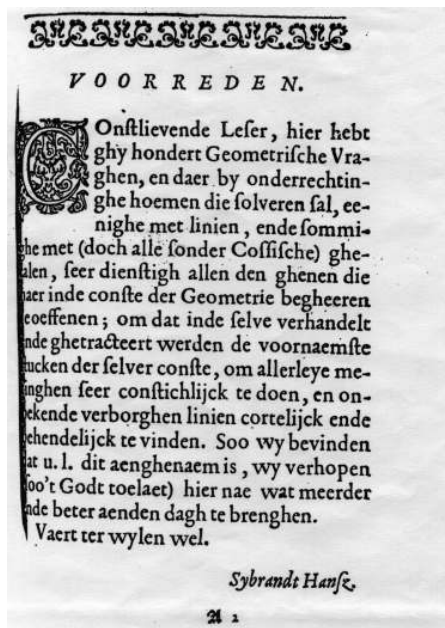 VOORREDEN.
COnſtlievende Leſer, hier hebt
ghy hondert Geometriſche Vra-
ghen, en daer by onderrechtin-
ghe hoemen die ſolveren ſal, ee-
nighe met linien, ende ſommi-
he met (doch alle ſonder Coſſiſche) ghe-
alen, ſeer dienſtigh allen den ghenen die
aer inde conſte der Geometrie begheeren
eoeffenen; om dat inde ſelve verhandelt
nde ghetracteert werden de voornaemſte
tucken der ſelver conſte, om allerleye me-
inghen ſeer conſtichlijck te doen, en on-
ekende verborghen linien cortelijck ende
ehendelijck te vinden. Soo wy bevinden
at u. l. dit aenghenaem is, wy verhopen
ſoo't Godt toelaet) hier nae wat meerder
nde beter aenden dagh te brenghen.
Vaert ter wylen wel.
Sybrandt Hanſz.
A 2